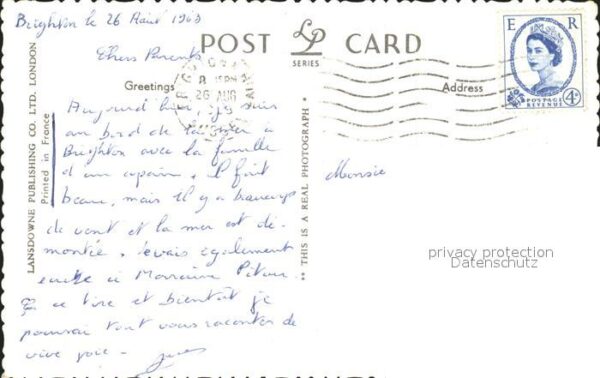 Brighton le 26 Août 1963
Chers Parents
POST CARD
LP
SERIES
Greetings
Address
E R
POSTAGE
REVENUE
4D
26 AUG
LANSDOWNE PUBLISHING CO. LTD. LONDON
Printed in France
** THIS IS A REAL PHOTOGRAPH **
Aujourd'hui, je suis
au bord de la mer à
Brighton avec la famille
d'un copain, il fait
beau, mais il y a beaucoup
de vent et la mer est dé-
montée. également
à
ça se tire et bientôt je
pourrai tout vous raconter de
vive voie -
Monsie
privacy protection
Datenschutz